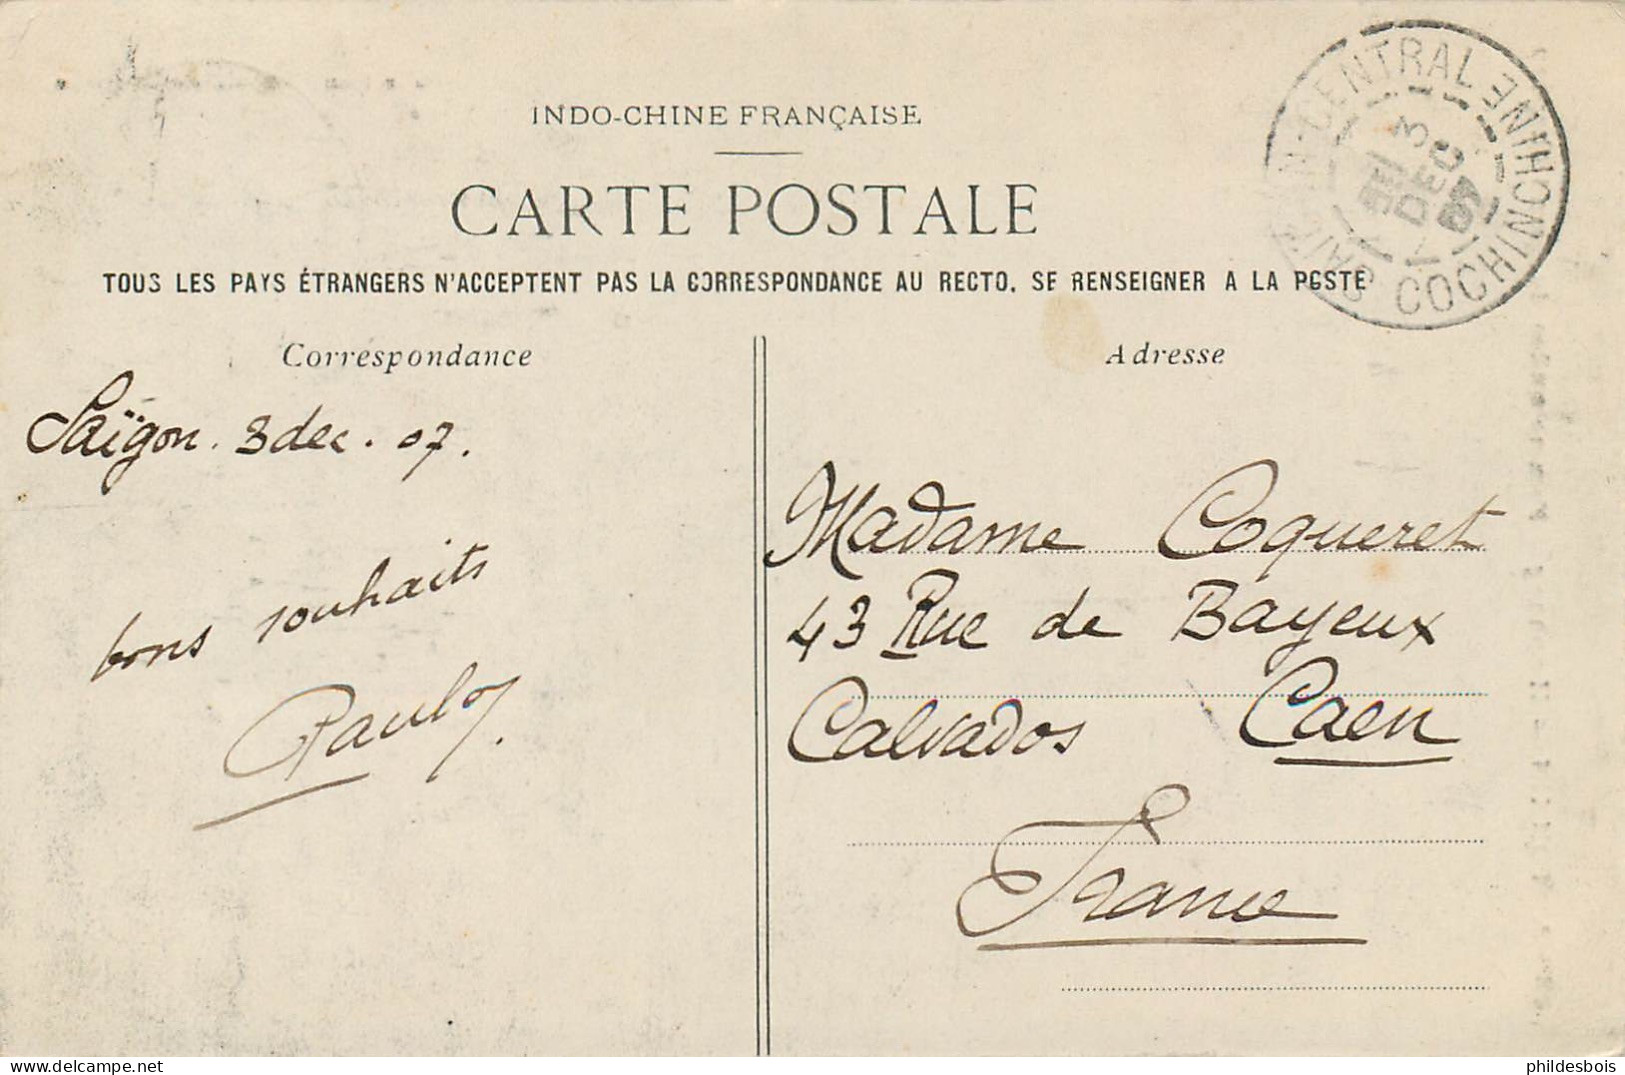 INDO-CHINE FRANÇAISE
CARTE POSTALE
TOUS LES PAYS ÉTRANGERS N'ACCEPTENT PAS LA CORRESPONDANCE AU RECTO. SE RENSEIGNER A LA POSTE
SAIGON-CENTRAL
3
DEC
07
COCHINCHINE
Correspondance
Saïgon. 3 dec. 07.
bons souhaits
Adresse
Madame Coqueret
43 Rue de Bayeux
Calvados Caen
France
Delcampe.net
phildesbois